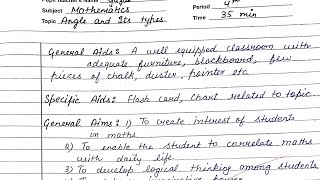 Period 4th
Subject Mathematics
Time 35 min
Topic Angle and Its types.
General Aids: A well equipped classroom with
adequate furniture, blackboard, few
pieces of chalk, duster, pointer etc
Specific Aids: Flash card, Chart related to topic
General Aims: 1) To create interest of students
in maths.
2) To enable the student to correlate maths
with daily life.
3) To develop logical thinking among students